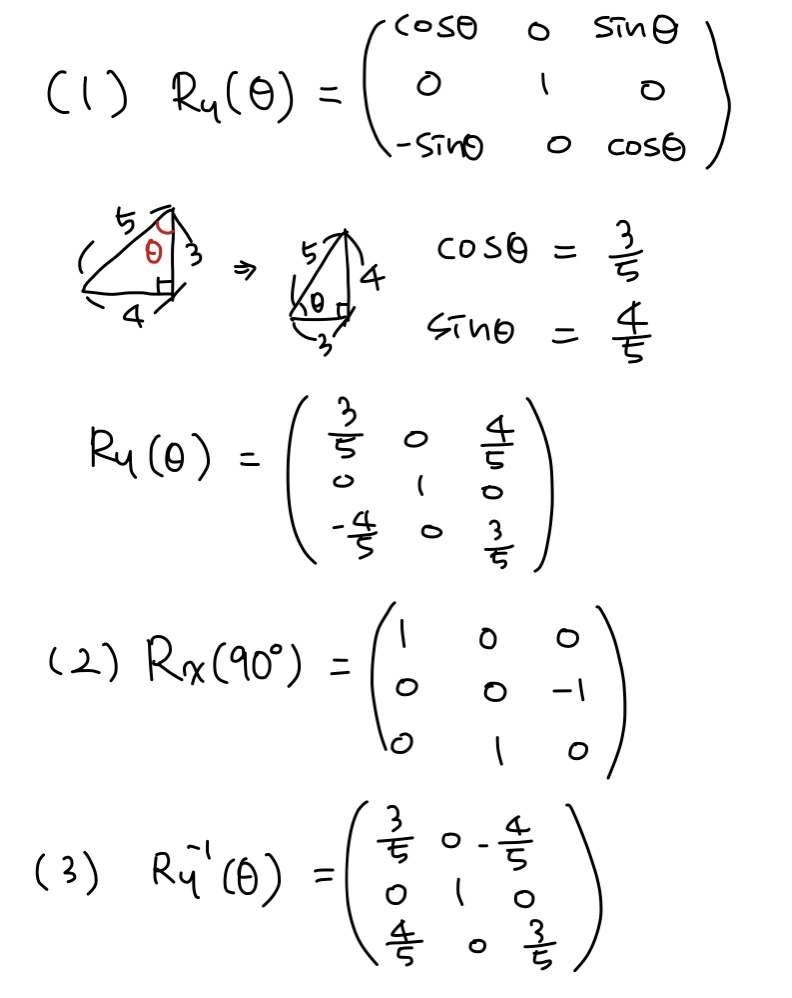 (1) Ry(θ) = ( cosθ 0 sinθ
0 1 0
-sinθ 0 cosθ )
5 θ 3 4 ⇒ 5 θ 4 3
cosθ = 3/5
sinθ = 4/5
Ry(θ) = ( 3/5 0 4/5
0 1 0
-4/5 0 3/5 )
(2) Rx(90°) = ( 1 0 0
0 0 -1
0 1 0 )
(3) Ry⁻¹(θ) = ( 3/5 0 -4/5
0 1 0
4/5 0 3/5 )